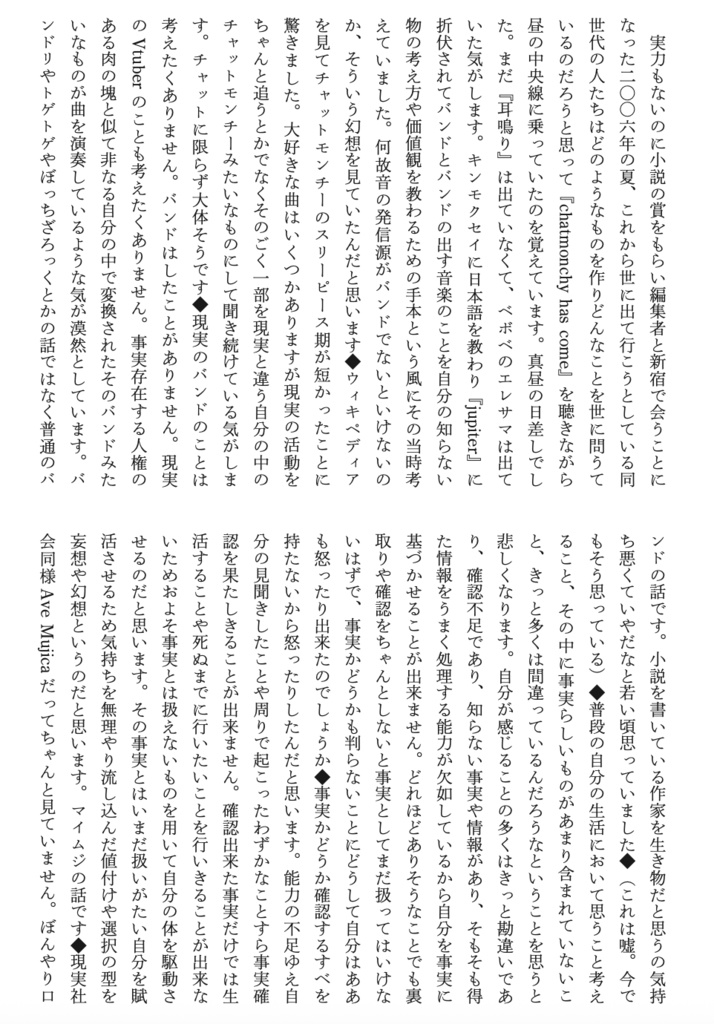 実力もないのに小説の賞をもらい編集者と新宿で会うことに
なった二〇〇六年の夏、これから世に出て行こうとしている同
世代の人たちはどのようなものを作りどんなことを世に問うて
いるのだろうと思って『chatmonchy has come』を聴きながら
昼の中央線に乗っていたのを覚えています。真昼の日差しでし
た。まだ『耳鳴り』は出ていなくて、ベボベのエレサマは出て
いた気がします。キンモクセイに日本語を教わり『jupiter』に
折伏されてバンドとバンドの出す音楽のことを自分の知らない
物の考え方や価値観を教わるための手本という風にその当時考
えていました。何故音の発信源がバンドでないといけないの
か、そういう幻想を見ていたんだと思います◆ウィキペディア
を見てチャットモンチーのスリーピース期が短かったことに
驚きました。大好きな曲はいくつかありますが現実の活動を
ちゃんと追うとかでなくそのごく一部を現実と違う自分の中の
チャットモンチーみたいなものにして聞き続けている気がしま
す。チャットに限らず大体そうです◆現実のバンドのことは
考えたくありません。バンドはしたことがありません。現実
の Vtuber のことも考えたくありません。事実存在する人権の
ある肉の塊と似て非なる自分の中で変換されたそのバンドみた
いなものが曲を演奏しているような気が漠然としています。バ
ンドリやトゲトゲやぼっちざろっくとかの話ではなく普通のバ
ンドの話です。小説を書いている作家を生き物だと思うの気持
ち悪くていやだなと若い頃思っていました◆（これは嘘。今で
もそう思っている）◆普段の自分の生活において思うこと考え
ること、その中に事実らしいものがあまり含まれていないこ
と、きっと多くは間違っているんだろうなということを思うと
悲しくなります。自分が感じることの多くはきっと勘違いであ
り、確認不足であり、知らない事実や情報があり、そもそも得
た情報をうまく処理する能力が欠如しているから自分を事実に
基づかせることが出来ません。どれほどありそうなことでも裏
取りや確認をちゃんとしないと事実としてまだ扱ってはいけな
いはずで、事実かどうかも判らないことにどうして自分はああ
も怒ったり出来たのでしょうか◆事実かどうか確認するすべを
持たないから怒ったりしたんだと思います。能力の不足ゆえ自
分の見聞きしたことや周りで起こったわずかなことすら事実確
認を果たしきることが出来ません。確認出来た事実だけでは生
活することや死ぬまでに行いたいことを行いきることが出来な
いためおよそ事実とは扱えないものを用いて自分の体を駆動さ
せるのだと思います。その事実とはいまだ扱いがたい自分を賦
活させるため気持ちを無理やり流し込んだ値付けや選択の型を
妄想や幻想というのだと思います。マイムジの話です◆現実社
会同様 Ave Mujica だってちゃんと見ていません。ぼんやり口